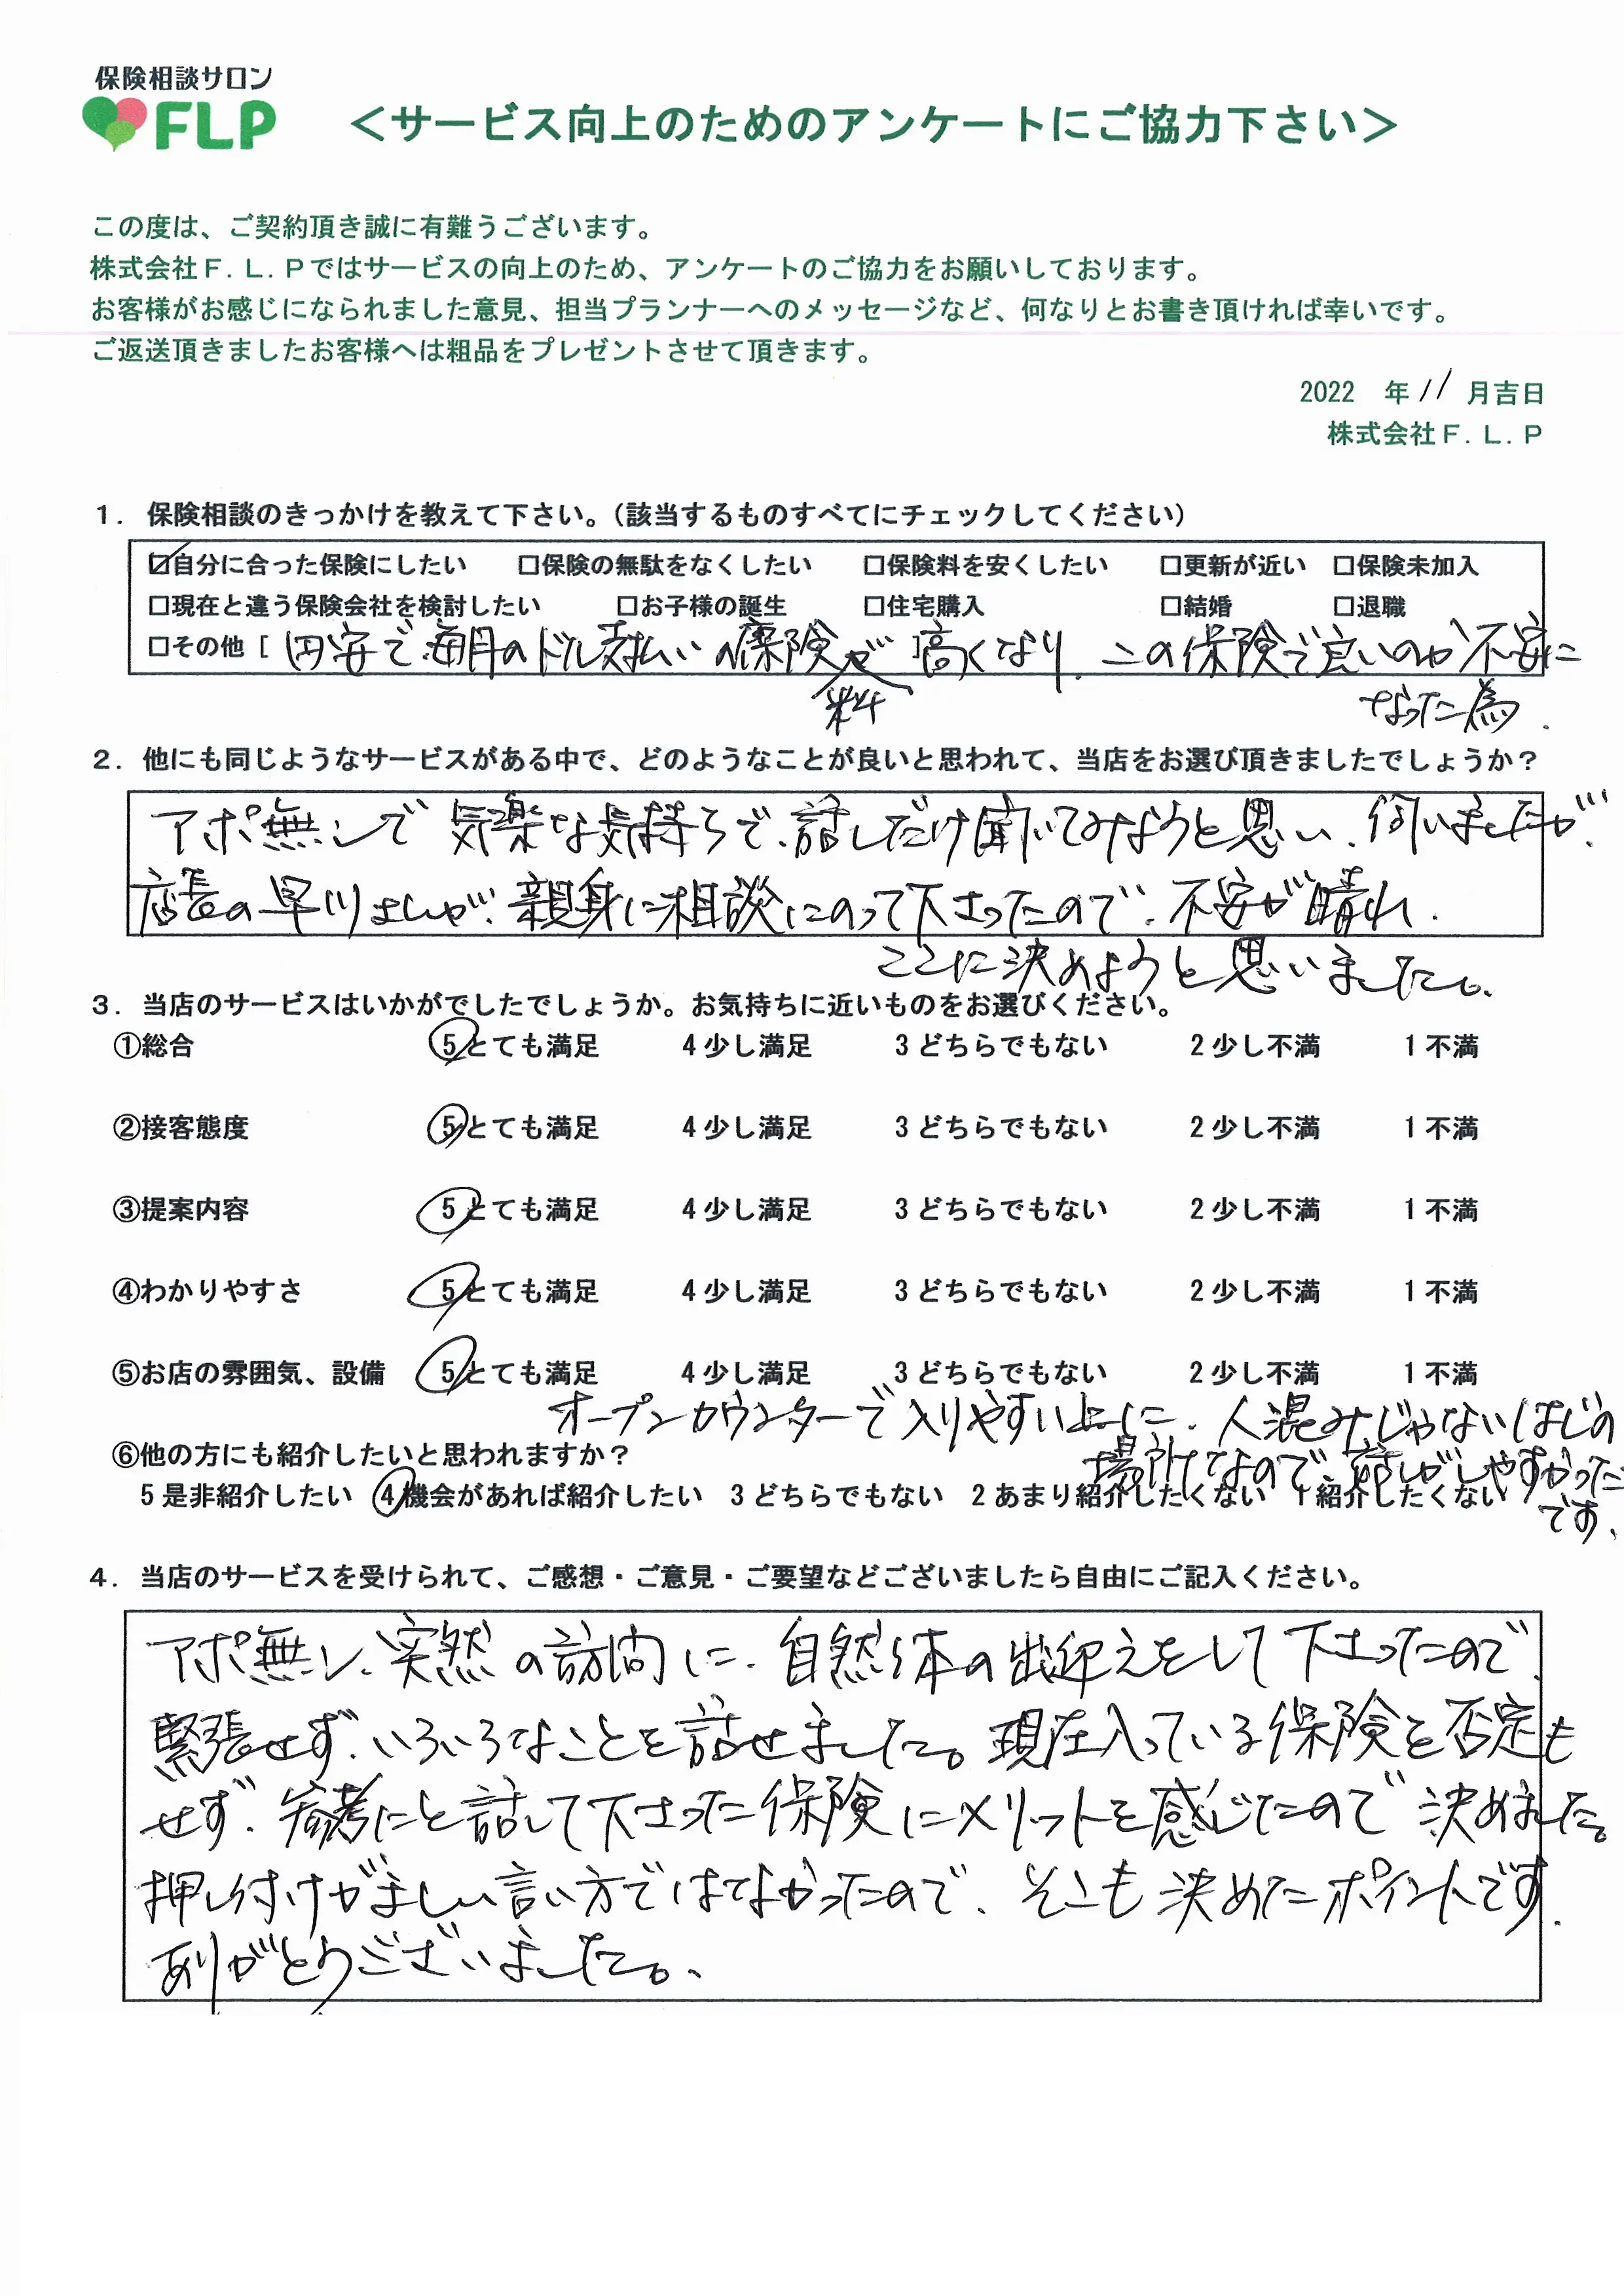 保険相談サロン
FLP
＜サービス向上のためのアンケートにご協力下さい＞
この度は、ご契約頂き誠に有難うございます。
株式会社F.L.Pではサービスの向上のため、アンケートのご協力をお願いしております。
お客様がお感じになられました意見、担当プランナーへのメッセージなど、何なりとお書き頂ければ幸いです。
ご返送頂きましたお客様へは粗品をプレゼントさせて頂きます。
2022 年 11 月吉日
株式会社F.L.P
1. 保険相談のきっかけを教えて下さい。（該当するものすべてにチェックしてください）
☑自分に合った保険にしたい □保険の無駄をなくしたい □保険料を安くしたい □更新が近い □保険未加入
□現在と違う保険会社を検討したい □お子様の誕生 □住宅購入 □結婚 □退職
□その他 [ 円安で毎月のドル支払いの保険料が高くなり、この保険で良いのか不安に
なった為.
2. 他にも同じようなサービスがある中で、どのようなことが良いと思われて、当店をお選び頂きましたでしょうか？
アポ無しで気楽な気持ちで、話しだけ聞いてみようと思い、伺いましたが、
店長の早川さんが、親身に相談にのって下さったので、不安が晴れ、
ここに決めようと思いました。
3. 当店のサービスはいかがでしたでしょうか。お気持ちに近いものをお選びください。
①総合 5 とても満足 4 少し満足 3 どちらでもない 2 少し不満 1 不満
②接客態度 5 とても満足 4 少し満足 3 どちらでもない 2 少し不満 1 不満
③提案内容 5 とても満足 4 少し満足 3 どちらでもない 2 少し不満 1 不満
④わかりやすさ 5 とても満足 4 少し満足 3 どちらでもない 2 少し不満 1 不満
⑤お店の雰囲気、設備 5 とても満足 4 少し満足 3 どちらでもない 2 少し不満 1 不満
オープンカウンターで入りやすい上に、人混みじゃないはじの
場所なので、話しがしやすかった
です.
⑥他の方にも紹介したいと思われますか？
5 是非紹介したい 4 機会があれば紹介したい 3 どちらでもない 2 あまり紹介したくない 1 紹介したくない
4. 当店のサービスを受けられて、ご感想・ご意見・ご要望などございましたら自由にご記入ください。
アポ無し、突然の訪問に、自然体の出迎えをして下さったので、
緊張せず、いろいろなことを話せました。現在入っている保険を否定も
せず、参考にと話して下さった保険にメリットを感じたので決めました。
押し付けがましい言い方ではなかったので、そこも決めたポイントです.
ありがとうございました。